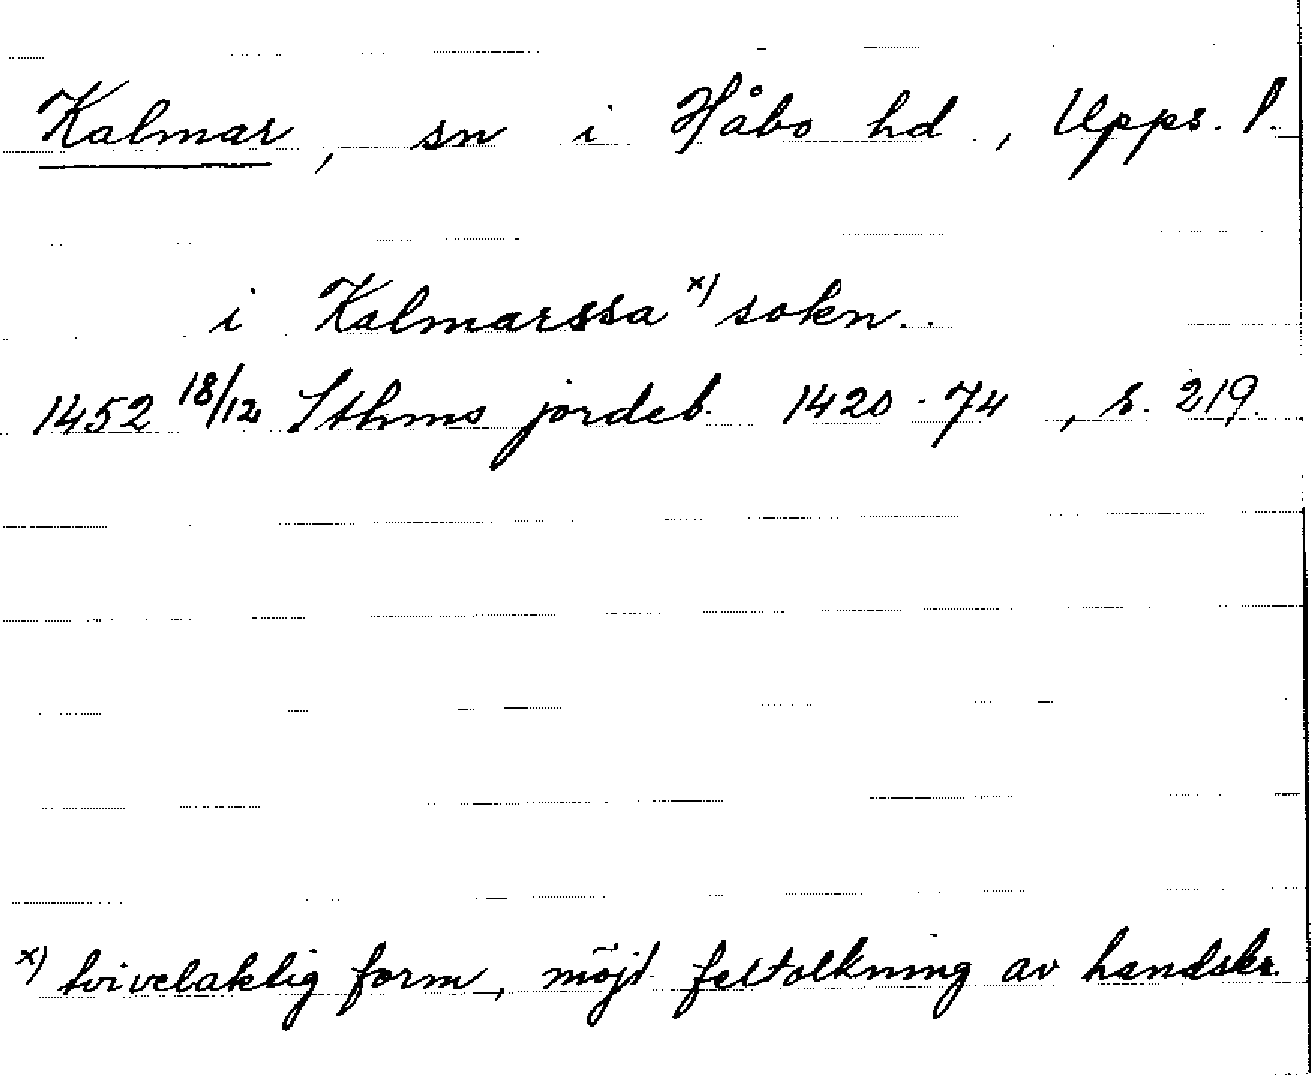 Kalmar, sn i Håbo hd., Upps. l.
i Kalmarssa x) sokn..
1452 18/12 Sthms jordeb. 1420-74, s. 219.
x) tvivelaktig form, möjl. feltolkning av handskr.